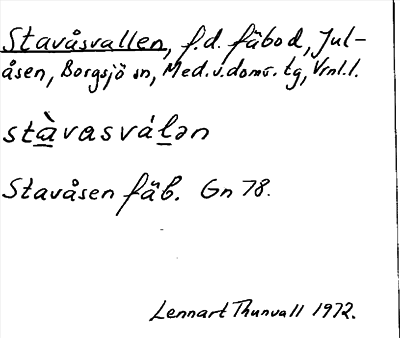 Stavåsvallen, f.d. fäbod, Jul-
åsen, Borgsjö sn, Med. v. doms. tg, Vrnl.l.
stàvasválən
Stavåsen fäb. Gn 78.
Lennart Thunvall 1972.